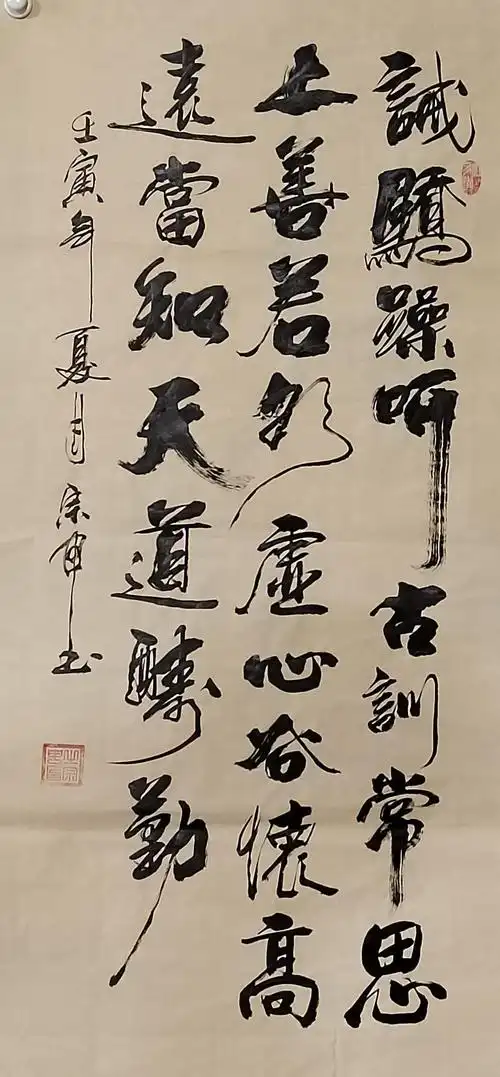 誡驕躁听古訓常思
上善若水虛心谷懷高
遠當知天道醻勤
壬寅年夏月宗申书